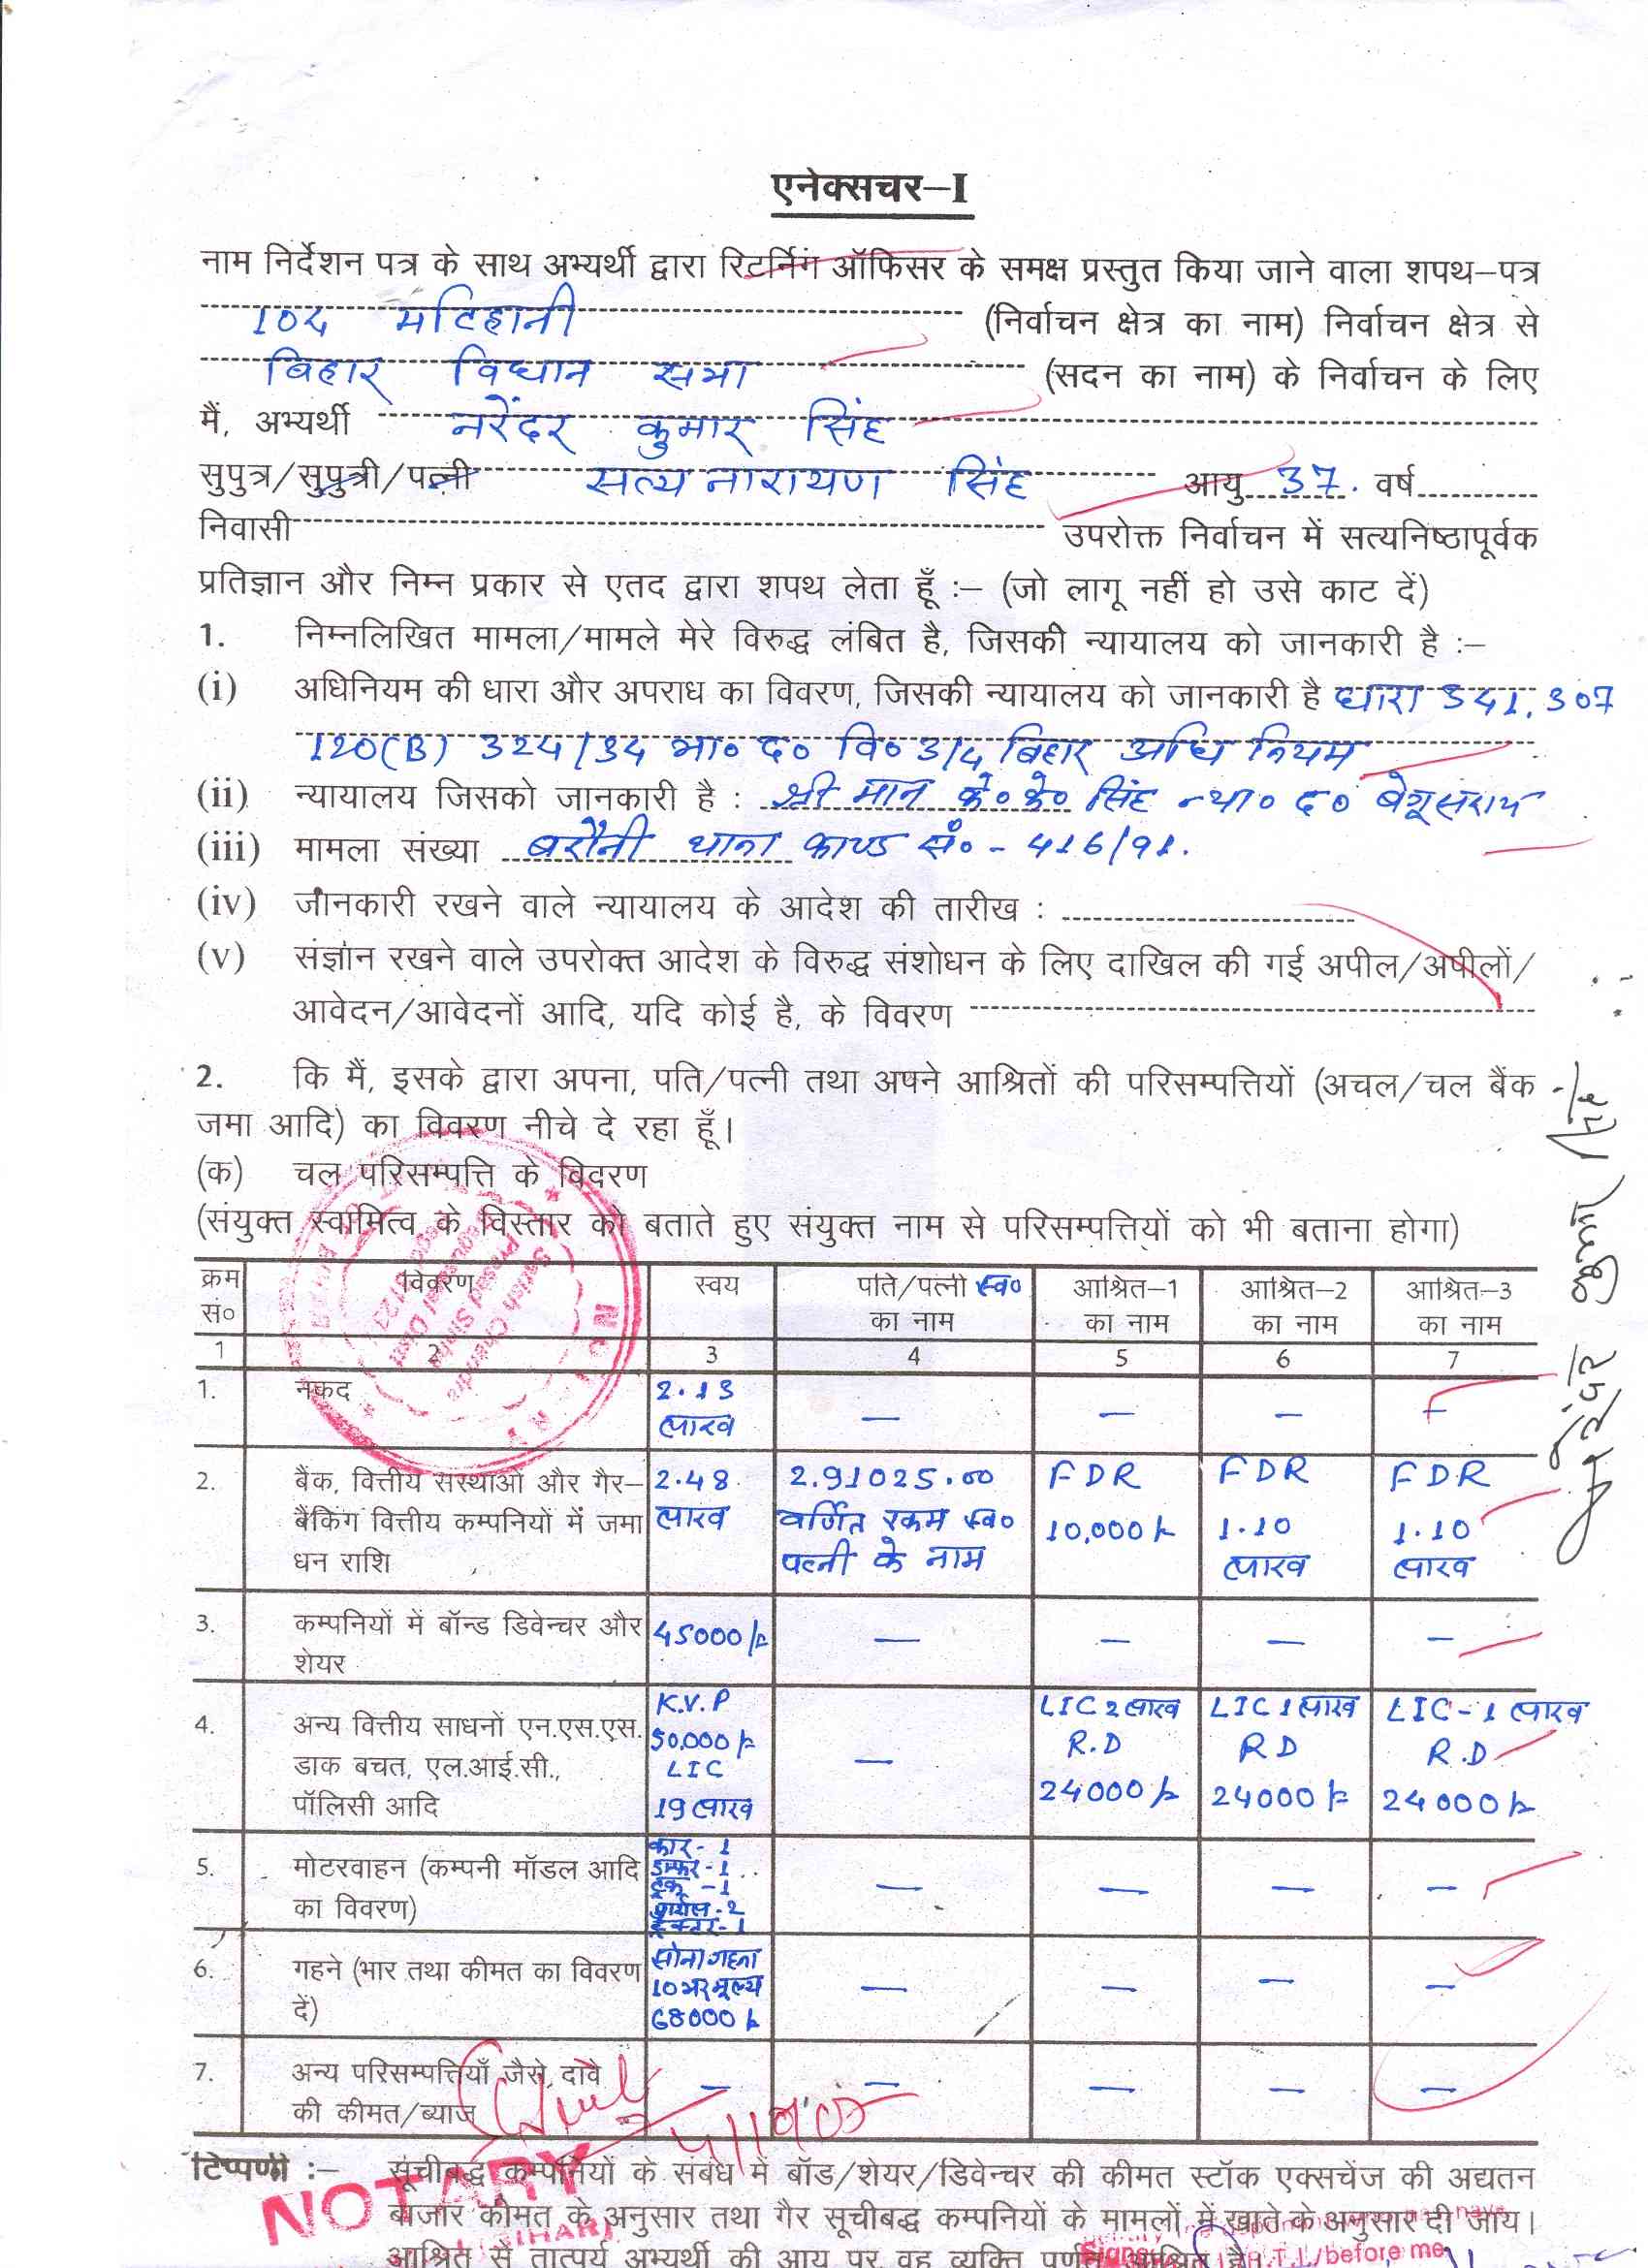 एनेक्सचर–I
नाम निर्देशन पत्र के साथ अभ्यर्थी द्वारा रिटर्निंग ऑफिसर के समक्ष प्रस्तुत किया जाने वाला शपथ–पत्र
104 मटिहानी (निर्वाचन क्षेत्र का नाम) निर्वाचन क्षेत्र से
बिहार विधान सभा (सदन का नाम) के निर्वाचन के लिए
मैं, अभ्यर्थी नरेंदर कुमार सिंह
सुपुत्र/सुपुत्री/पत्नी सत्य नारायण सिंह आयु 37. वर्ष
निवासी उपरोक्त निर्वाचन में सत्यनिष्ठापूर्वक
प्रतिज्ञान और निम्न प्रकार से एतद द्वारा शपथ लेता हूँ :– (जो लागू नहीं हो उसे काट दें)
1. निम्नलिखित मामला/मामले मेरे विरुद्ध लंबित है, जिसकी न्यायालय को जानकारी है :–
(i) अधिनियम की धारा और अपराध का विवरण, जिसकी न्यायालय को जानकारी है धारा 341, 307
120(B) 324/34 भा० द० वि० 3/4 बिहार अधि नियम
(ii) न्यायालय जिसको जानकारी है : श्री मान के० के० सिंह न्या० द० बेगूसराय
(iii) मामला संख्या बरौनी थाना काण्ड सं० - 416/91.
(iv) जानकारी रखने वाले न्यायालय के आदेश की तारीख :
(v) संज्ञान रखने वाले उपरोक्त आदेश के विरुद्ध संशोधन के लिए दाखिल की गई अपील/अपीलों/
आवेदन/आवेदनों आदि, यदि कोई है, के विवरण
2. कि मैं, इसके द्वारा अपना, पति/पत्नी तथा अपने आश्रितों की परिसम्पत्तियों (अचल/चल बैंक
जमा आदि) का विवरण नीचे दे रहा हूँ।
(क) चल परिसम्पत्ति के विवरण
(संयुक्त स्वामित्व के विस्तार को बताते हुए संयुक्त नाम से परिसम्पत्तियों को भी बताना होगा)
क्रम सं० विवरण स्वय पति/पत्नी स्व० का नाम आश्रित–1 का नाम आश्रित–2 का नाम आश्रित–3 का नाम
1 2 3 4 5 6 7
1. नकद 2.13 लाख — — — —
2. बैंक, वित्तीय संस्थाओं और गैर– 2.48 2.91025.00 FDR FDR FDR
बैंकिंग वित्तीय कम्पनियों में जमा लाख वर्णित रकम स्व० 10,000/- 1.10 1.10
धन राशि पत्नी के नाम लाख लाख
3. कम्पनियों में बॉन्ड डिवेन्चर और 45000/- — — — —
शेयर
K.V.P LIC 2 लाख LIC 1 लाख LIC - 1 लाख
4. अन्य वित्तीय साधनों एन.एस.एस. 50,000/- — R.D RD R.D
डाक बचत, एल.आई.सी., LIC
पॉलिसी आदि 19 लाख 24000/- 24000/- 24000/-
कार - 1
5. मोटरवाहन (कम्पनी मॉडल आदि डम्फर - 1 — — — —
ट्रक - 1
का विवरण) - 2
ट्रैक्टर - 1
सोना गहना
6. गहने (भार तथा कीमत का विवरण 10 भर मूल्य — — — —
दें) 68000/-
7. अन्य परिसम्पत्तियाँ जैसे, दावे — — — — —
की कीमत/ब्याज
टिप्पणी :– सूचीबद्ध कम्पनियों के संबंध में बॉड/शेयर/डिवेन्चर की कीमत स्टॉक एक्सचेंज की अद्यतन
बाजार कीमत के अनुसार तथा गैर सूचीबद्ध कम्पनियों के मामलों में खाते के अनुसार दी जाय।
आश्रित से तात्पर्य अभ्यर्थी की आय पर वह व्यक्ति आश्रित है
NOTARY
(BIHAR)
before me
Satish Chandra
Prasad Sinha
नरेंदर कुमार सिंह